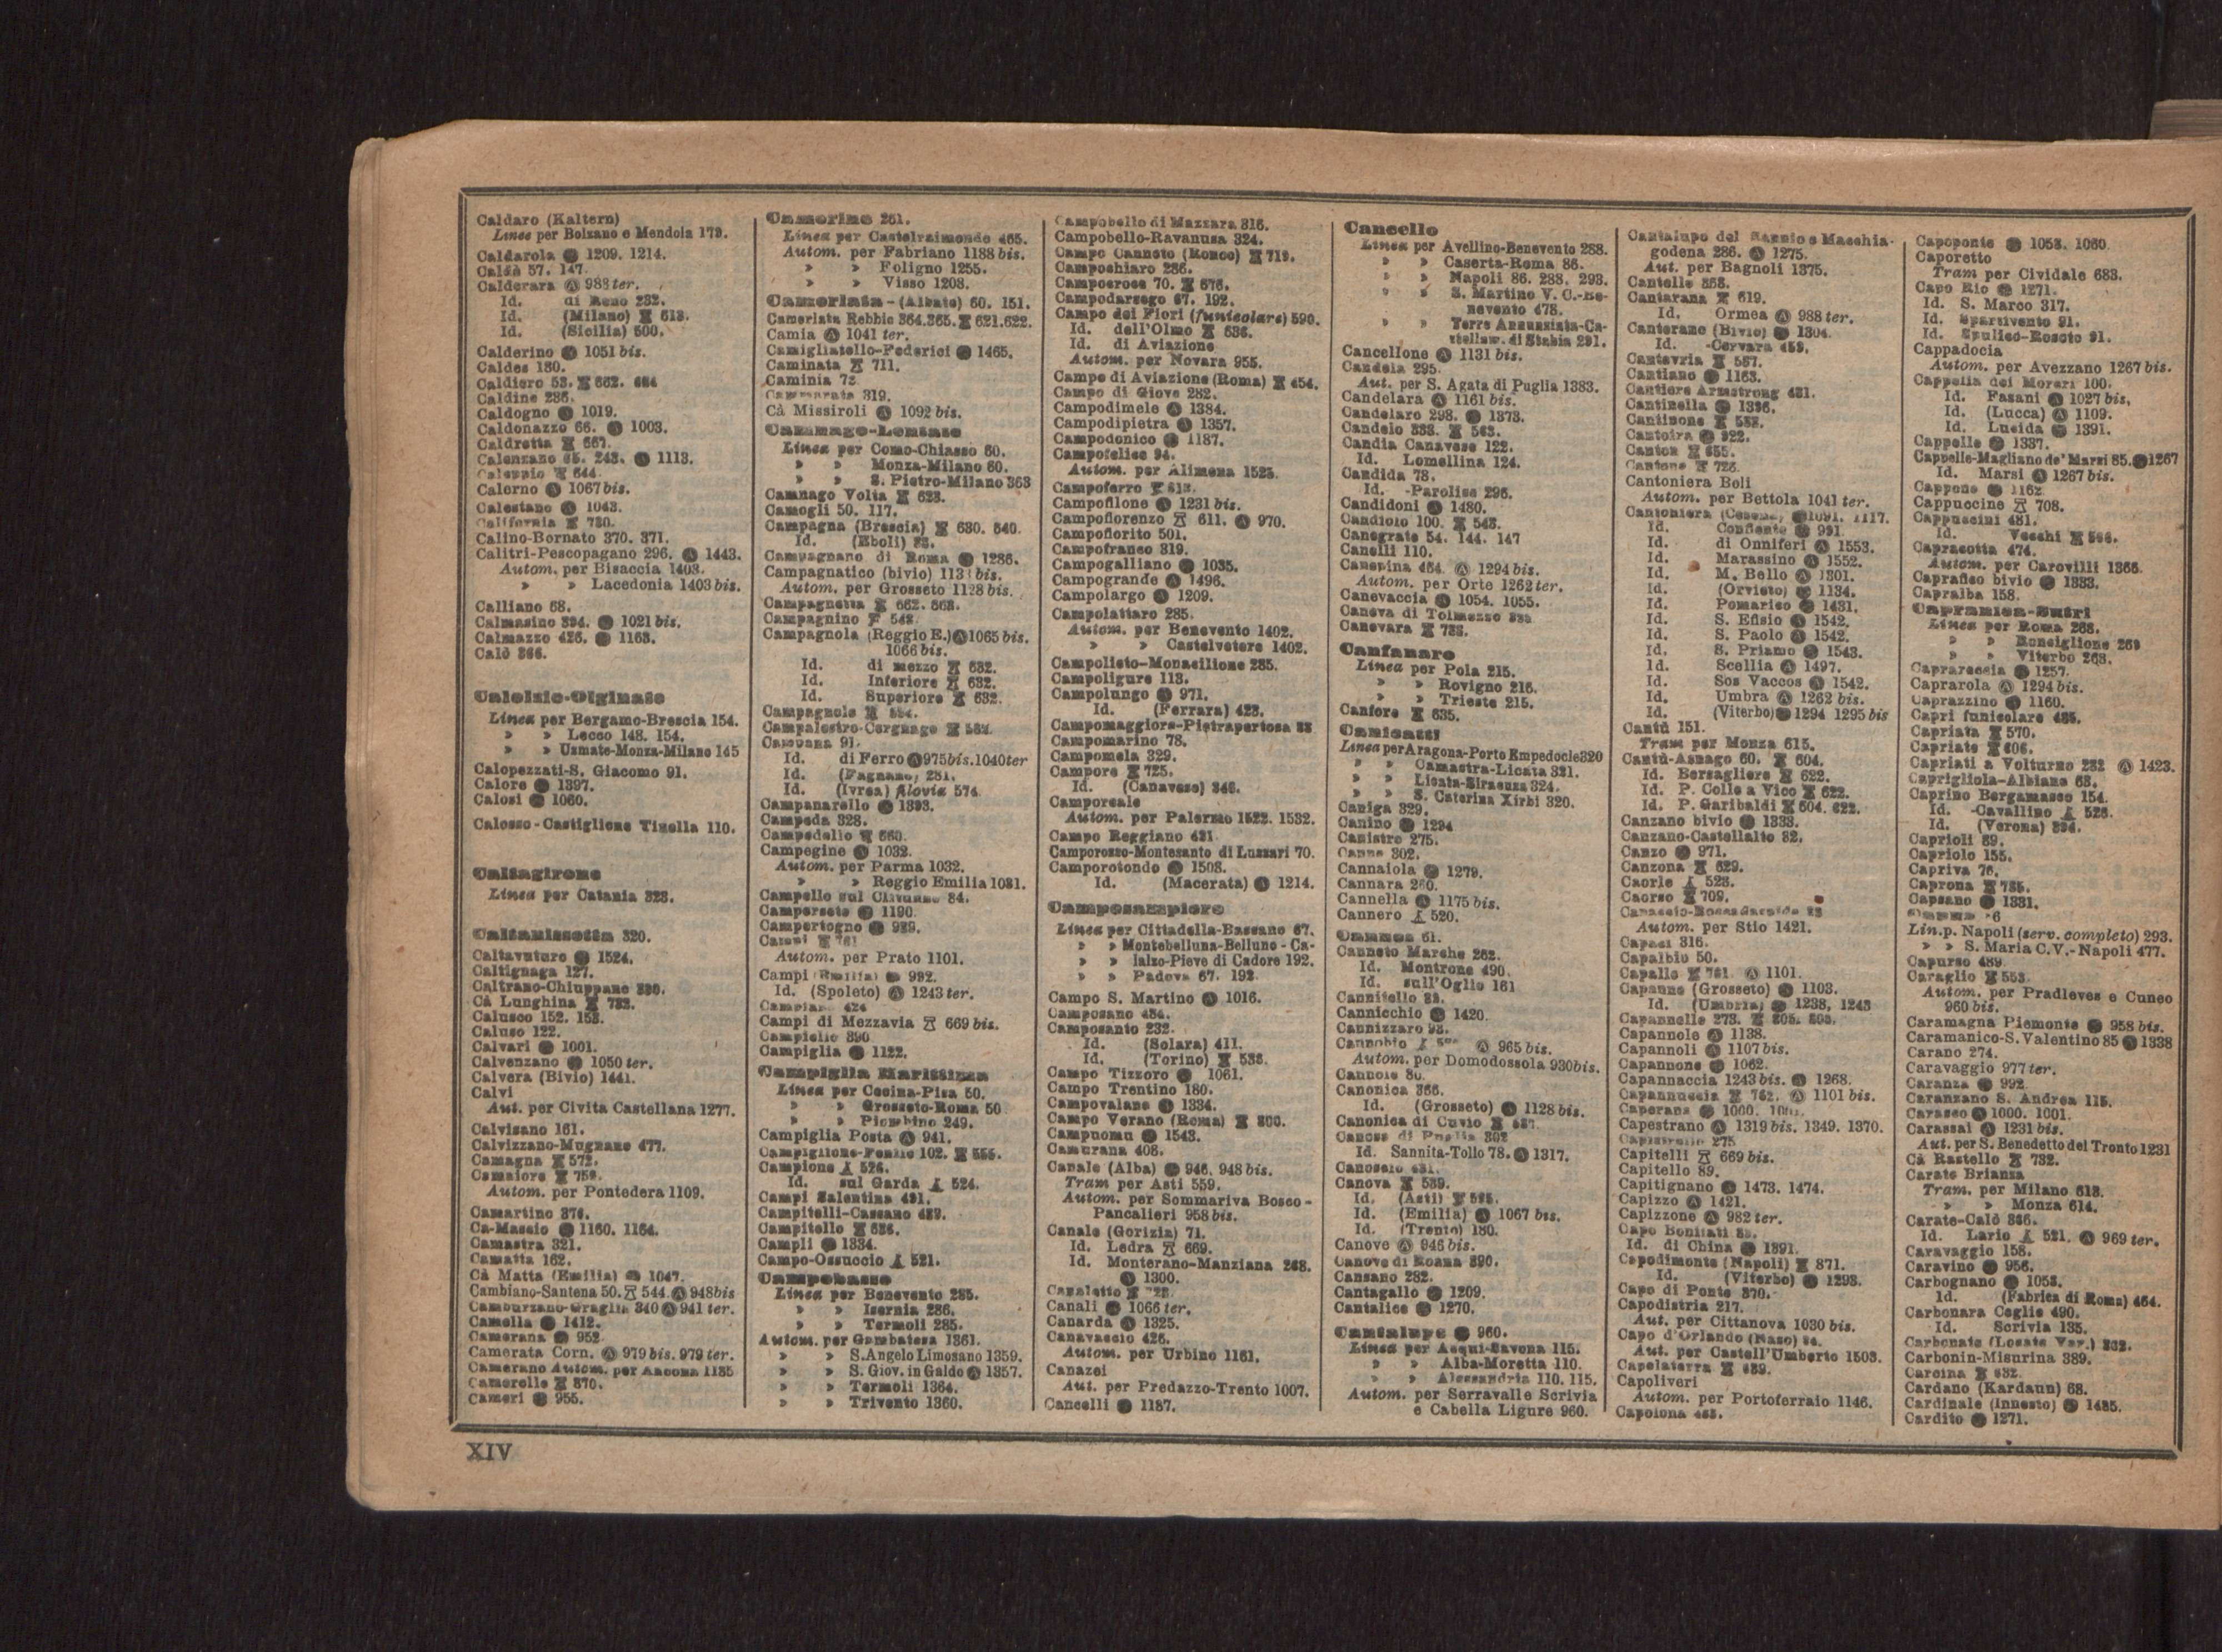 Caldaro (Kaltern)
Linee per Bolzano e Mendola 179.
Caldarola Ⓐ 1209. 1214.
Caldè 57. 147
Calderara Ⓐ 988 ter.
Id. di Reno 232.
Id. (Milano) 613.
Id. (Sicilia) 500.
Calderino Ⓐ 1051 bis.
Caldes 180.
Caldiero 53. 662. 664
Caldine 236.
Caldogno Ⓐ 1019.
Caldonazzo 66. Ⓐ 1003.
Caldretta 667.
Calenzano 243. Ⓐ 1113.
Caleppio 644.
Calerno Ⓐ 1067 bis.
Calestano Ⓐ 1043.
California 730.
Calino-Bornato 370. 371.
Calitri-Pescopagano 296. Ⓐ 1443.
Autom. per Bisaccia 1403.
» » Lacedonia 1403 bis.
Calliano 68.
Calmasino 394. Ⓐ 1021 bis.
Calmazzo 426. Ⓐ 1163.
Calò 366.
Calolzio-Olginate
Linea per Bergamo-Brescia 154.
» » Lecco 148. 154.
» » Usmate-Monza-Milano 145
Calopezzati-S. Giacomo 91.
Calore Ⓐ 1397.
Calosi Ⓐ 1060.
Calosso-Castiglione Tinella 110.
Caltagirone
Linea per Catania 323.
Caltanissetta 320.
Caltavuturo Ⓐ 1524.
Caltignaga 127.
Caltrano-Chiuppano 390.
Cà Lunghina 732.
Calusco 152. 153.
Caluso 122.
Calvari Ⓐ 1001.
Calvenzano Ⓐ 1050 ter.
Calvera (Bivio) 1441.
Calvi
Aut. per Civita Castellana 1277.
Calvisano 161.
Calvizzano-Mugnano 477.
Camagna 572.
Camaiore 759.
Autom. per Pontedera 1109.
Camartino 374.
Ca-Massio Ⓐ 1160. 1164.
Camastra 321.
Camatta 162.
Cà Matta (Emilia) Ⓐ 1047.
Cambiano-Santena 50. 544. Ⓐ 948 bis
Camburzano-Graglia 340 Ⓐ 941 ter.
Camella Ⓐ 1412.
Camerana Ⓐ 952
Camerata Corn. Ⓐ 979 bis. 979 ter.
Camerano Autom. per Ancona 1185
Camerelle 870.
Cameri Ⓐ 955.
Camerino 261.
Linea per Castelraimondo 465.
Autom. per Fabriano 1188 bis.
» » Foligno 1255.
» » Visso 1208.
Camerlata - (Albate) 60. 151.
Camerlata Rebbio 364. 365. 621. 622.
Camia Ⓐ 1041 ter.
Camigliatello-Federici Ⓐ 1465.
Caminata 711.
Caminia 73
Cammarata 319.
Cà Missiroli Ⓐ 1092 bis.
Camnago-Lentate
Linea per Como-Chiasso 60.
» » Monza-Milano 60.
» » S. Pietro-Milano 363
Camnago Volta 623.
Camogli 50. 117.
Campagna (Brescia) 630. 640.
Id. (Eboli) 83.
Campagnano di Roma Ⓐ 1286.
Campagnatico (bivio) bis.
Autom. per Grosseto 1128 bis.
Campagnetta 662. 663.
Campagnino 548.
Campagnola (Reggio E.) Ⓐ 1065 bis.
1066 bis.
Id. di mezzo 632.
Id. Inferiore 632.
Id. Superiore 632.
Campagnole
Campalestro-Cergnago
Campana 91.
Id. di Ferro Ⓐ 975 bis. 1040 ter
Id. (Fagnano) 281.
Id. (Ivrea) filovia 574
Campanarello Ⓐ 1393.
Campeda 328.
Campedello 660.
Campegine Ⓐ 1032.
Autom. per Parma 1032.
» » Reggio Emilia 1031.
Campello sul Clitunno 84.
Camperseto Ⓐ 1190
Campertogno Ⓐ 939.
Campi 761
Autom. per Prato 1101.
Campi (Emilia) Ⓐ 992.
Id. (Spoleto) Ⓐ 1243 ter.
Campiano 424
Campi di Mezzavia 669 bis.
Campiello 390
Campiglia Ⓐ 1122.
Campiglia Marittima
Linea per Cecina-Pisa 50.
» » Grosseto-Roma 50
» » Piombino 249.
Campiglia Posta Ⓐ 941.
Campiglione-Fenile 102.
Campione 526.
Id. sul Garda 524.
Campi Salentina 491.
Campitelli-Cassano 489.
Campitello 636.
Campli Ⓐ 1334.
Campo-Ossuccio 521.
Campobasso
Linea per Benevento 285.
» » Isernia 286.
» » Termoli 285.
Autom. per Gambatesa 1361.
» » S. Angelo Limosano 1359.
» » S. Giov. in Galdo Ⓐ 1357.
» » Termoli 1364.
» » Trivento 1360.
Campobello di Mazzara 316.
Campobello-Ravanusa 324.
Campo Canneto (Ronco) 719.
Campochiaro 286.
Campocroce 70. 676.
Campodarsego 67. 192.
Campo dei Fiori (funicolare) 590.
Id. dell'Olmo 636.
Id. di Aviazione
Autom. per Novara 955.
Campo di Aviazione (Roma) 454.
Campo di Giove 282.
Campodimele Ⓐ 1384.
Campodipietra Ⓐ 1357.
Campodonico Ⓐ 1187.
Campofelice 94.
Autom. per Alimena 1523.
Campoferro
Campofilone Ⓐ 1231 bis.
Campoflorenzo 611. Ⓐ 970.
Campofiorito 501.
Campofranco 319.
Campogalliano Ⓐ 1035.
Campogrande Ⓐ 1496.
Campolargo Ⓐ 1209.
Campolattaro 285.
Autom. per Benevento 1402.
» » Castelvetere 1402.
Campolieto-Monacilione 285.
Campoligure 113.
Campolungo Ⓐ 971.
Id. (Ferrara) 423.
Campomaggiore-Pietrapertosa 88
Campomarino 78.
Campomela 329.
Campore 725.
Id. (Canavese) 346.
Camporeale
Autom. per Palermo 1522. 1532.
Campo Reggiano 421
Camporosso-Montesanto di Lussari 70.
Camporotondo Ⓐ 1508.
Id. (Macerata) Ⓐ 1214.
Camposampiero
Linea per Cittadella-Bassano 67.
» » Montebelluna-Belluno - Ca-
» » lalzo-Pieve di Cadore 192.
» » Padova 67. 192
Campo S. Martino Ⓐ 1016.
Camposano 484.
Camposanto 232.
Id. (Solara) 411.
Id. (Torino) 538.
Campo Tizzoro Ⓐ 1061.
Campo Trentino 180.
Campovalano Ⓐ 1334.
Campo Verano (Roma) 800.
Campuomu Ⓐ 1543.
Camurana 408.
Canale (Alba) Ⓐ 946. 948 bis.
Tram per Asti 559.
Autom. per Sommariva Bosco -
Pancalieri 958 bis.
Canale (Gorizia) 71.
Id. Ledra 669.
Id. Monterano-Manziana 268.
Ⓐ 1300.
Canaletto
Canali Ⓐ 1066 ter.
Canarda Ⓐ 1325.
Canavaccio 426.
Autom. per Urbino 1161.
Canazei
Aut. per Predazzo-Trento 1007.
Cancelli Ⓐ 1187.
Cancello
Linea per Avellino-Benevento 288.
» » Caserta-Roma 86.
» » Napoli 86. 288. 293.
» » S. Martino V. C.-Be-
nevento 478.
» » Torre Annunziata-Ca-
stellam. di Stabia 291.
Cancellone Ⓐ 1131 bis.
Candela 295.
Aut. per S. Agata di Puglia 1383.
Candelara Ⓐ 1161 bis.
Candelaro 298. Ⓐ 1373.
Candelo 333. 563.
Candia Canavese 122.
Id. Lomellina 124.
Candida 78.
Id. -Parolise 296.
Candidoni Ⓐ 1480.
Candiolo 100. 548.
Canegrate 54. 144. 147
Canelli 110.
Canepina 464. Ⓐ 1294 bis.
Autom. per Orte 1262 ter.
Canevaccia Ⓐ 1054. 1055.
Caneva di Tolmezzo
Canevara 738.
Canfanaro
Linea per Pola 215.
» » Rovigno 216.
» » Trieste 215.
Canfore 635.
Canicattì
Linea per Aragona-Porto Empedocle 320
» » Camastra-Licata 321.
» » Licata-Siracusa 324.
» » S. Caterina Xirbi 320.
Caniga 329.
Canino Ⓐ 1294
Canistro 275.
Canne 302.
Cannaiola Ⓐ 1279.
Cannara 260.
Cannella Ⓐ 1175 bis.
Cannero 520.
Cannes 61.
Canneto Marche 262.
Id. Montrone 490.
Id. sull'Oglio 161
Cannitello 89.
Cannicchio Ⓐ 1420.
Cannizzaro 93.
Cannobio Ⓐ 965 bis.
Autom. per Domodossola 930 bis.
Cannole 80.
Canonica 366.
Id. (Grosseto) Ⓐ 1128 bis.
Canonica di Cuvio
Canosa di Puglia 302
Id. Sannita-Tollo 78. Ⓐ 1317.
Canossio
Canova 539.
Id. (Asti) 595.
Id. (Emilia) Ⓐ 1067 bis.
Id. (Trento) 180.
Canove Ⓐ 946 bis.
Canove di Roana 390.
Cansano 282.
Cantagallo Ⓐ 1209.
Cantalice Ⓐ 1270.
Cantalupo Ⓐ 960.
Linea per Acqui-Savona 115.
» » Alba-Moretta 110.
» » Alessandria 110. 115.
Autom. per Serravalle Scrivia
e Cabella Ligure 960.
Cantalupo del Sannio e Macchia-
godena 286. Ⓐ 1275.
Aut. per Bagnoli 1375.
Cantello 368.
Cantarana 619.
Id. Ormea Ⓐ 988 ter.
Canterano (Bivio) Ⓐ 1304.
Id. -Cervara 459.
Cantavria 587.
Cantiano Ⓐ 1163.
Cantiere Armstrong 481.
Cantinella Ⓐ 1396.
Cantinone 588.
Cantoira Ⓐ 922.
Canton 655.
Cantone 726.
Cantoniera Boli
Autom. per Bettola 1041 ter.
Cantoniera (Cesena) Ⓐ 1091. 1117.
Id. Confiente Ⓐ 991.
Id. di Onniferi Ⓐ 1553.
Id. Marassino Ⓐ 1552.
Id. M. Bello Ⓐ 1301.
Id. (Orvieto) Ⓐ 1134.
Id. Pomarico Ⓐ 1431.
Id. S. Efisio Ⓐ 1542.
Id. S. Paolo Ⓐ 1542.
Id. S. Priamo Ⓐ 1543.
Id. Scellia Ⓐ 1497.
Id. Sos Vaccos Ⓐ 1542.
Id. Umbra Ⓐ 1262 bis.
Id. (Viterbo) Ⓐ 1294 1295 bis
Cantù 151.
Tram per Monza 615.
Cantù-Asnago 60. 604.
Id. Bersagliere 622.
Id. P. Colle a Vico 622.
Id. P. Garibaldi 604. 622.
Canzano bivio Ⓐ 1333.
Canzano-Castellalto 82.
Canzo Ⓐ 971.
Canzona 629.
Caorle 523.
Caorso 709.
Capaccio-Roccadaspide 88
Autom. per Stio 1421.
Capaci 316.
Capalbio 50.
Capalle 761 Ⓐ 1101.
Capanne (Grosseto) Ⓐ 1103.
Id. (Umbria) Ⓐ 1238. 1243
Capannelle 273. 805.
Capannole Ⓐ 1138.
Capannoli Ⓐ 1107 bis.
Capannone Ⓐ 1062.
Capannaccia 1243 bis. Ⓐ 1268.
Capannuccia 762. Ⓐ 1101 bis.
Caperana Ⓐ 1000. 1001.
Capestrano Ⓐ 1319 bis. 1349. 1370.
Capistrello 275
Capitelli 669 bis.
Capitello 89.
Capitignano Ⓐ 1473. 1474.
Capizzo Ⓐ 1421.
Capizzone Ⓐ 982 ter.
Capo Bonifati
Id. di China Ⓐ 1391.
Capodimonte (Napoli) 871.
Id. (Viterbo) Ⓐ 1293.
Capo di Ponte 370.
Capodistria 217.
Aut. per Cittanova 1030 bis.
Capo d'Orlando (Naso) 94.
Aut. per Castell'Umberto 1503.
Capolaterra 689.
Capoliveri
Autom. per Portoferraio 1146.
Capolona 468.
Capoponte Ⓐ 1053. 1060.
Caporetto
Tram per Cividale 683.
Capo Rio Ⓐ 1271.
Id. S. Marco 317.
Id. Spartivento 91.
Id. Spulico-Roseto 91.
Cappadocia
Autom. per Avezzano 1267 bis.
Cappella dei Morari 100.
Id. Fasani Ⓐ 1027 bis.
Id. (Lucca) Ⓐ 1109.
Id. Lucida Ⓐ 1391.
Cappelle Ⓐ 1337.
Cappelle-Magliano de' Marsi 85. Ⓐ 1267
Id. Marsi Ⓐ 1267 bis.
Cappone Ⓐ 1162
Cappuccine 708.
Cappuccini 481.
Id. Vecchi
Capracotta 474.
Autom. per Carovilli 1366.
Caprafico bivio Ⓐ 1333.
Capralba 158.
Capranica-Sutri
Linea per Roma 268.
» » Ronciglione 269
» » Viterbo 268.
Caprareccia Ⓐ 1257.
Caprarola Ⓐ 1294 bis.
Caprazzino Ⓐ 1160.
Capri funicolare 485.
Capriata 570.
Capriate 606.
Capriati a Volturno 282 Ⓐ 1423.
Caprigliola-Albiano 63.
Caprino Bergamasco 154.
Id. -Cavallino 526.
Id. (Verona) 394.
Caprioli 89.
Capriolo 155.
Capriva 76.
Caprona 785.
Capsano Ⓐ 1331.
Lin. p. Napoli (serv. completo) 293.
» » S. Maria C.V.-Napoli 477.
Capurso 489.
Caraglio 553
Autom. per Pradleves e Cuneo
960 bis.
Caramagna Piemonte Ⓐ 958 bis.
Caramanico-S. Valentino 85 Ⓐ 1338
Carano 274.
Caravaggio 977 ter.
Caranza Ⓐ 992
Caranzano S. Andrea 115.
Carasco Ⓐ 1000. 1001.
Carassai Ⓐ 1231 bis.
Aut. per S. Benedetto del Tronto 1231
Cà Rastello 732.
Carate Brianza
Tram. per Milano 613.
» » Monza 614.
Carate-Calò 366.
Id. Lario 521. Ⓐ 969 ter.
Caravaggio 158.
Caravino Ⓐ 956.
Carbognano Ⓐ 1053.
Id. (Fabrica di Roma) 464.
Carbonara Ceglie 490.
Id. Scrivia 135.
Carbonate (Locate Var.) 362.
Carbonin-Misurina 389.
Carcina 632
Cardano (Kardaun) 68.
Cardinale (innesto) Ⓐ 1485.
Cardito Ⓐ 1271.
XIV